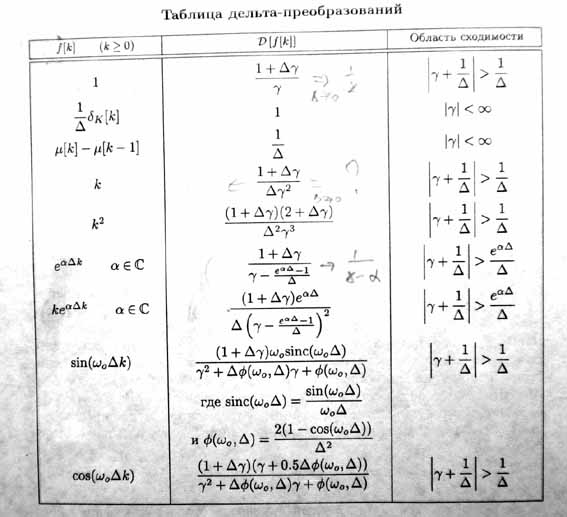 Таблица дельта-преобразований
f[k] (k ≥ 0) D[f[k]] Область сходимости
1 (1 + Δγ)/γ |γ + 1/Δ| > 1/Δ
(1/Δ)δ_K[k] 1 |γ| < ∞
μ[k] − μ[k − 1] 1/Δ |γ| < ∞
k (1 + Δγ)/(Δγ²) |γ + 1/Δ| > 1/Δ
k² (1 + Δγ)(2 + Δγ)/(Δ²γ³) |γ + 1/Δ| > 1/Δ
e^{αΔk} α ∈ ℂ (1 + Δγ)/(γ − (e^{αΔ} − 1)/Δ) |γ + 1/Δ| > e^{αΔ}/Δ
ke^{αΔk} α ∈ ℂ (1 + Δγ)e^{αΔ}/(Δ(γ − (e^{αΔ} − 1)/Δ)²) |γ + 1/Δ| > e^{αΔ}/Δ
sin(ω_oΔk) (1 + Δγ)ω_o sinc(ω_oΔ)/(γ² + Δφ(ω_o, Δ)γ + φ(ω_o, Δ)) |γ + 1/Δ| > 1/Δ
где sinc(ω_oΔ) = sin(ω_oΔ)/(ω_oΔ)
и φ(ω_o, Δ) = 2(1 − cos(ω_oΔ))/Δ²
cos(ω_oΔk) (1 + Δγ)(γ + 0.5Δφ(ω_o, Δ))/(γ² + Δφ(ω_o, Δ)γ + φ(ω_o, Δ)) |γ + 1/Δ| > 1/Δ